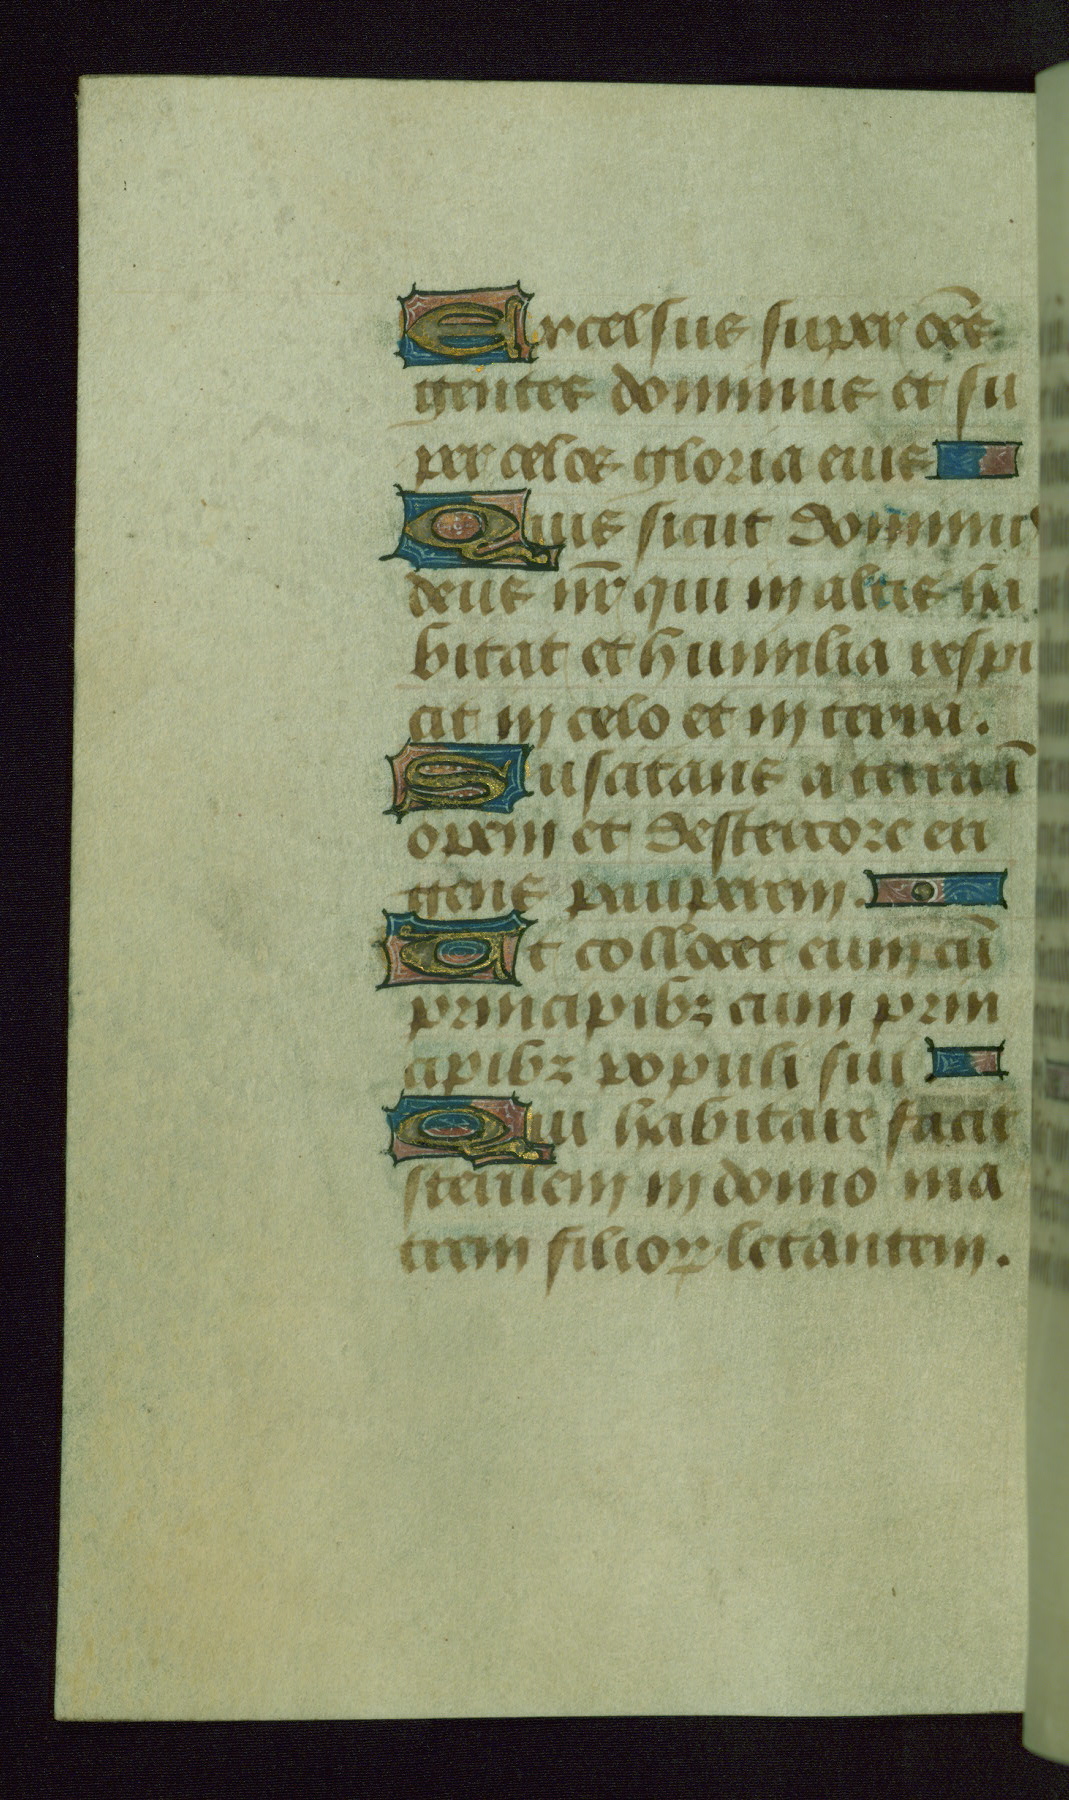 Excelsus super oēs
gentes dominus et su
per celos gloria eius
Quis sicut dominus
deus nr̄ qui in altis ha
bitat et humilia respi
cit in celo et in terra.
Suscitans a terra ī
opem et de stercore eri
gens pauperem.
Ut collocet eum cū
principibꝫ cum prin
cipibꝫ populi sui
Qui habitare facit
sterilem in domo ma
trem filioꝝ letantem.